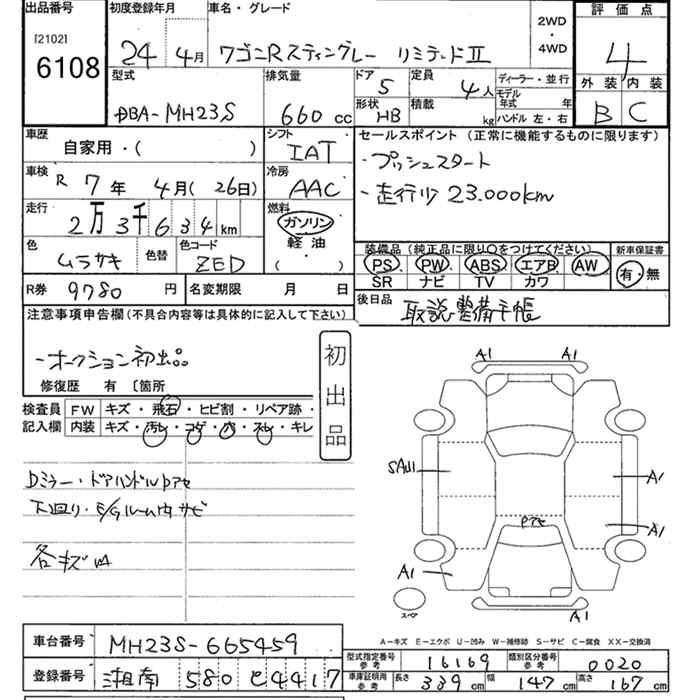 出品番号 初度登録年月 車名・グレード 評価点
[2102] 2WD・4WD
6108 24年 4月 ワゴンRスティングレー リミテッドⅡ 4
型式 排気量 ドア 定員 ディーラー・並行 外装 内装
DBA-MH23S 660cc 5 4人 モデル年式 年 B C
形状 HB 積載 kg ハンドル 左・右
車歴 シフト セールスポイント(正常に機能するものに限ります)
自家用・( ) IAT ・プッシュスタート
車検 R7年 4月(26日) 冷房 AAC ・走行少 23.000km
走行 2万3千634km 燃料 ガソリン
軽油
( )
色 ムラサキ 色替 色コード ZED
装備品(純正品に限り○をつけてください) 新車保証書
PS PW ABS エアB AW 有・無
SR ナビ TV カワ
R券 9780円 名変期限 月 日 後日品 取説 整備手帳
注意事項申告欄(不具合内容等は具体的に記入して下さい)
-オークション初出品。 初出品
修復歴 有 〔箇所
検査員記入欄 FW キズ・飛石・ヒビ割・リペア跡・
内装 キズ・汚レ・コゲ・穴・スレ・キレ
Dミラー・ドアハンドルPアセ
下廻り・E/Gルーム内サビ
各キズ凹
A1 A1
SAU1 A1
Pアセ A1
A1 A1
スペア
A-キズ E-エクボ U-凹み W-補修跡 S-サビ C-腐食 XX-交換済
車台番号 MH23S-665459
型式指定番号参考 16169 類別区分番号参考 0020
登録番号 湘南 580 と4417
車庫証明用参考 長さ 339cm 幅 147cm 高さ 167cm